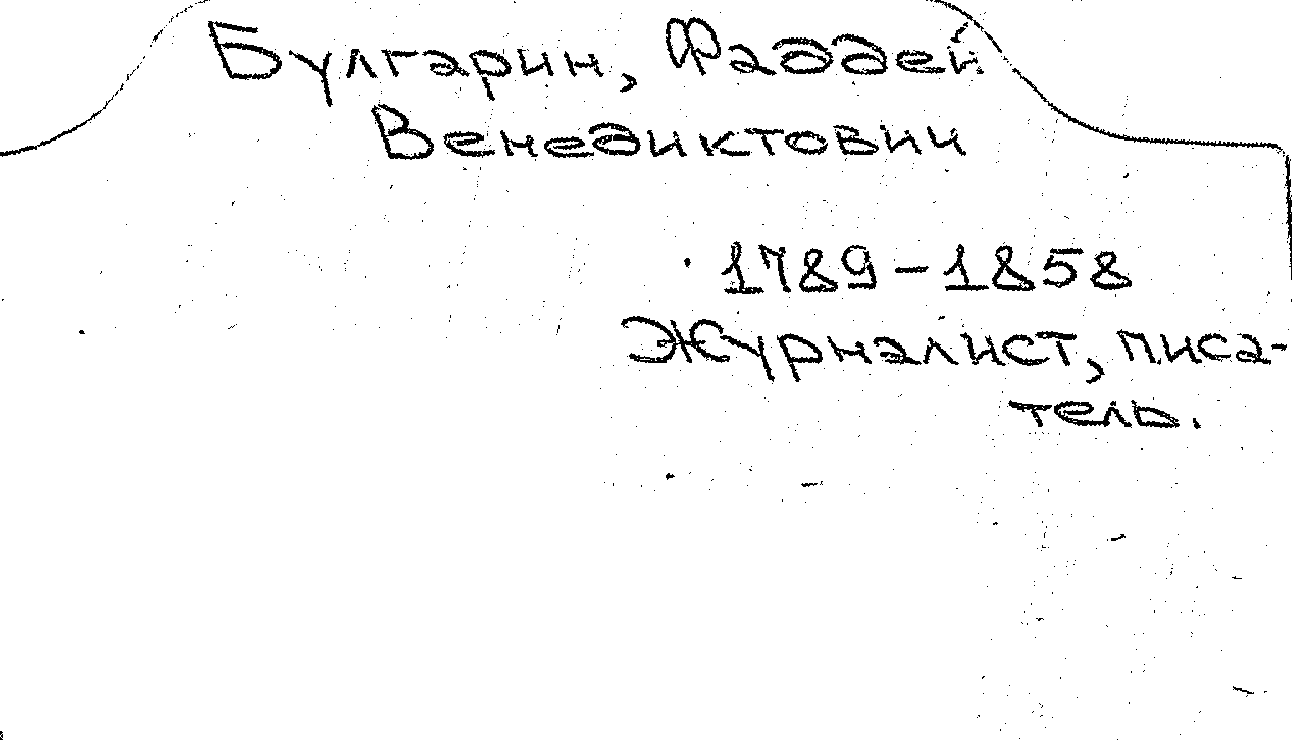 Булгарин, Фаддей
Венедиктович
1789-1858
Журналист, писа-
тель.